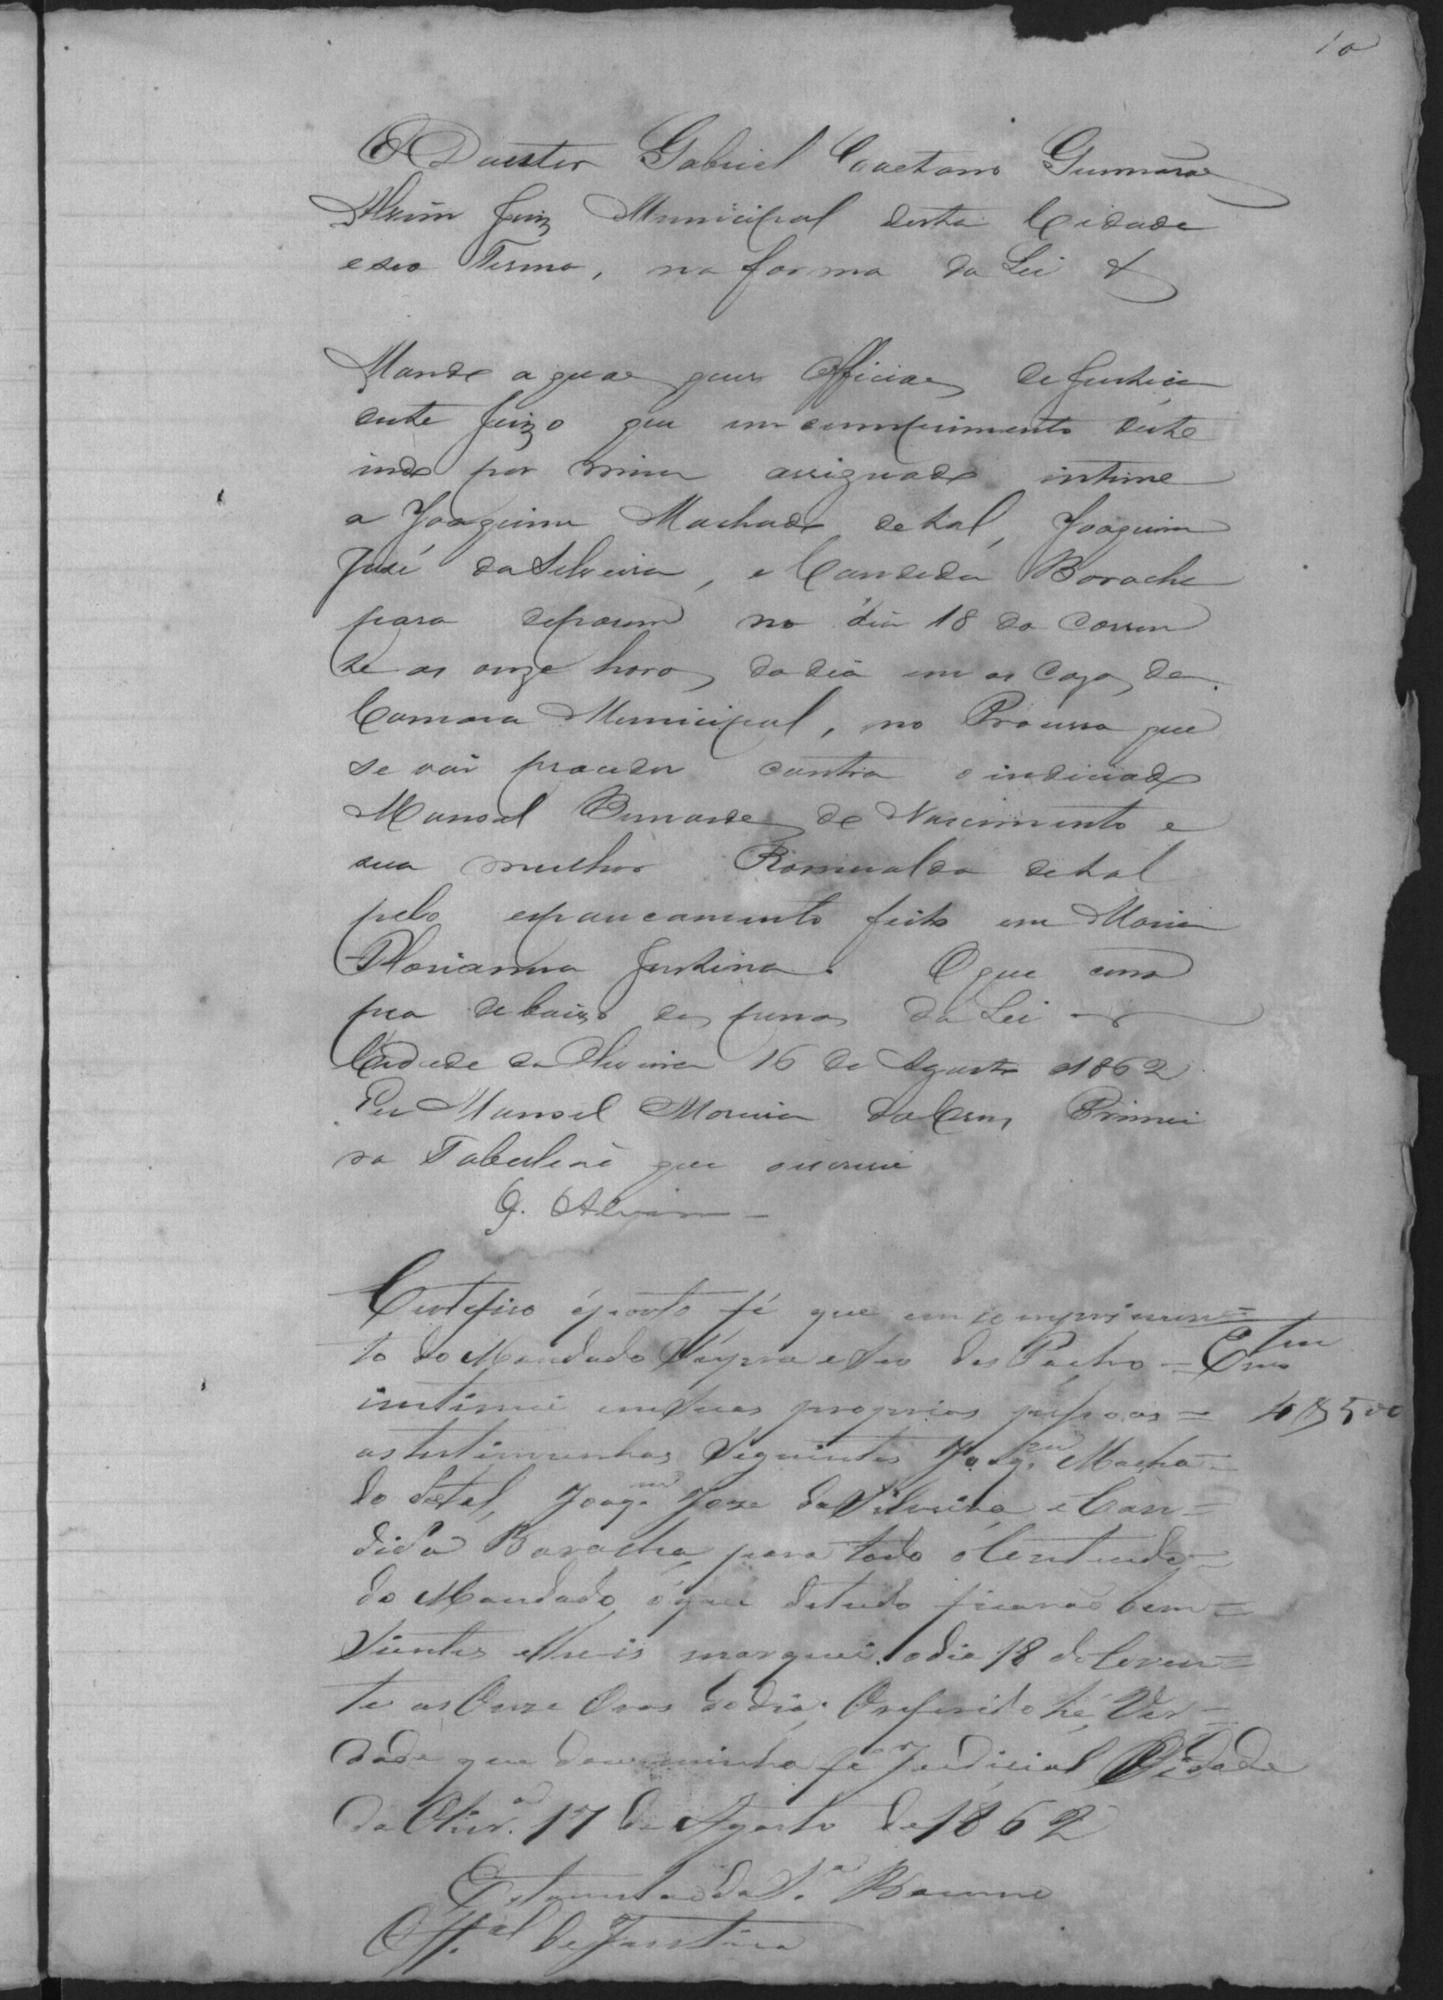 10
O Doutor Gabriel Caetano Guimarães
Alvim Juiz Municipal desta Cidade
e seo Termo, na forma da Lei &
Mando a quaes quer Officiaes de Justiça
deste Juizo que em cumprimento deste
indo por mim assignado intime
a Joaquim Machado de tal, Joaquim
José da Silveira, e Candida Boracha
para deporem no dia 18 do corren
te as onze horas do dia em as Cazas da
Camara Municipal, no Processo que
se vai proceder contra o indiciado
Manoel Bernardes do Nascimento e
sua mulher Romualda de tal
pelo espancamento feito em Maria
Florianna Justina. O que cum
pra debaixo das penas da Lei
Cidade da Oliveira 16 de Agosto d1862
Eu Manoel Moreira da Cruz Primei
ro Tabelião que escrevi
G. Alvim
Certefico é porto fé que em comprimen=
to do Mandado Supra e seo des Pacho =
intimei em suas proprias pessoas = 4$500
as testimunhas seguintes Joaq.m Macha=
do detal, Joaq.m Joze da Silveira e Can=
dida Baracha para todo o Conteudo=
do Mandado, o que detudo ficarão bem=
sientes e lheis marquei o dia 18 do Coren=
te as Onze Oras do dia: O referido hé Ver=
dade que dou minha fé Judicial, Cidade
da Oliv.ra 17 de Agosto de 1862
Off.al de Justiça